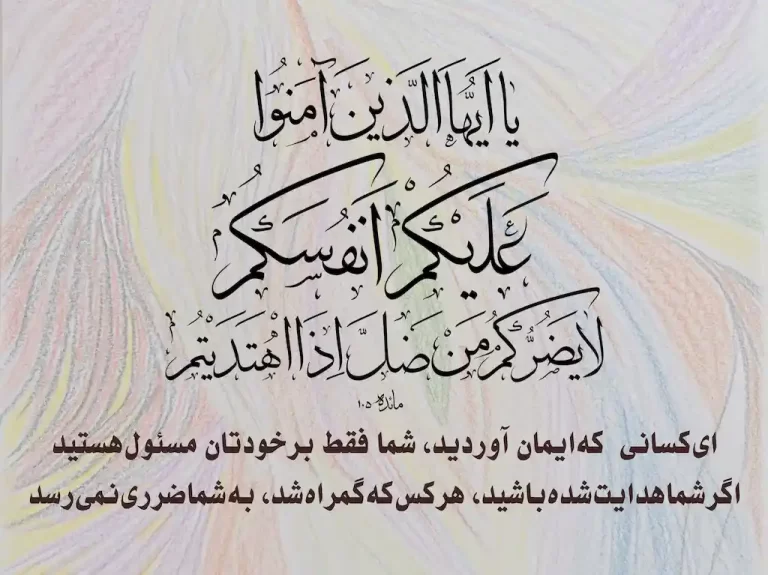 يا اَيُّهَا الَّذينَ آمَنُوا
عَلَيْكُمْ اَنْفُسَكُمْ
لا يَضُرُّكُمْ مَنْ ضَلَّ اِذَا اهْتَدَيْتُمْ
مائده ۱۰۵
ای کسانی که ایمان آوردید، شما فقط بر خودتان مسئول هستید
اگر شما هدایت شده باشید، هر کس که گمراه شد، به شما ضرری نمی‌رسد